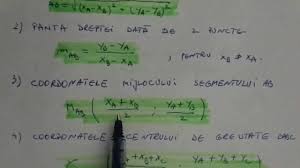 AB = √(x_A - x_B)² + (y_A - y_B)²
2) PANTA DREPTEI DATĂ DE 2 PUNCTE
m_AB = (y_B - y_A) / (x_B - x_A) , PENTRU x_B ≠ x_A
3) COORDONATELE MIJLOCULUI SEGMENTULUI AB
M_AB ( (x_A + x_B) / 2 , (y_A + y_B) / 2 )
4) COORDONATELE CENTRULUI DE GREUTATE
x_A + x_B + x_C y_A + y_B